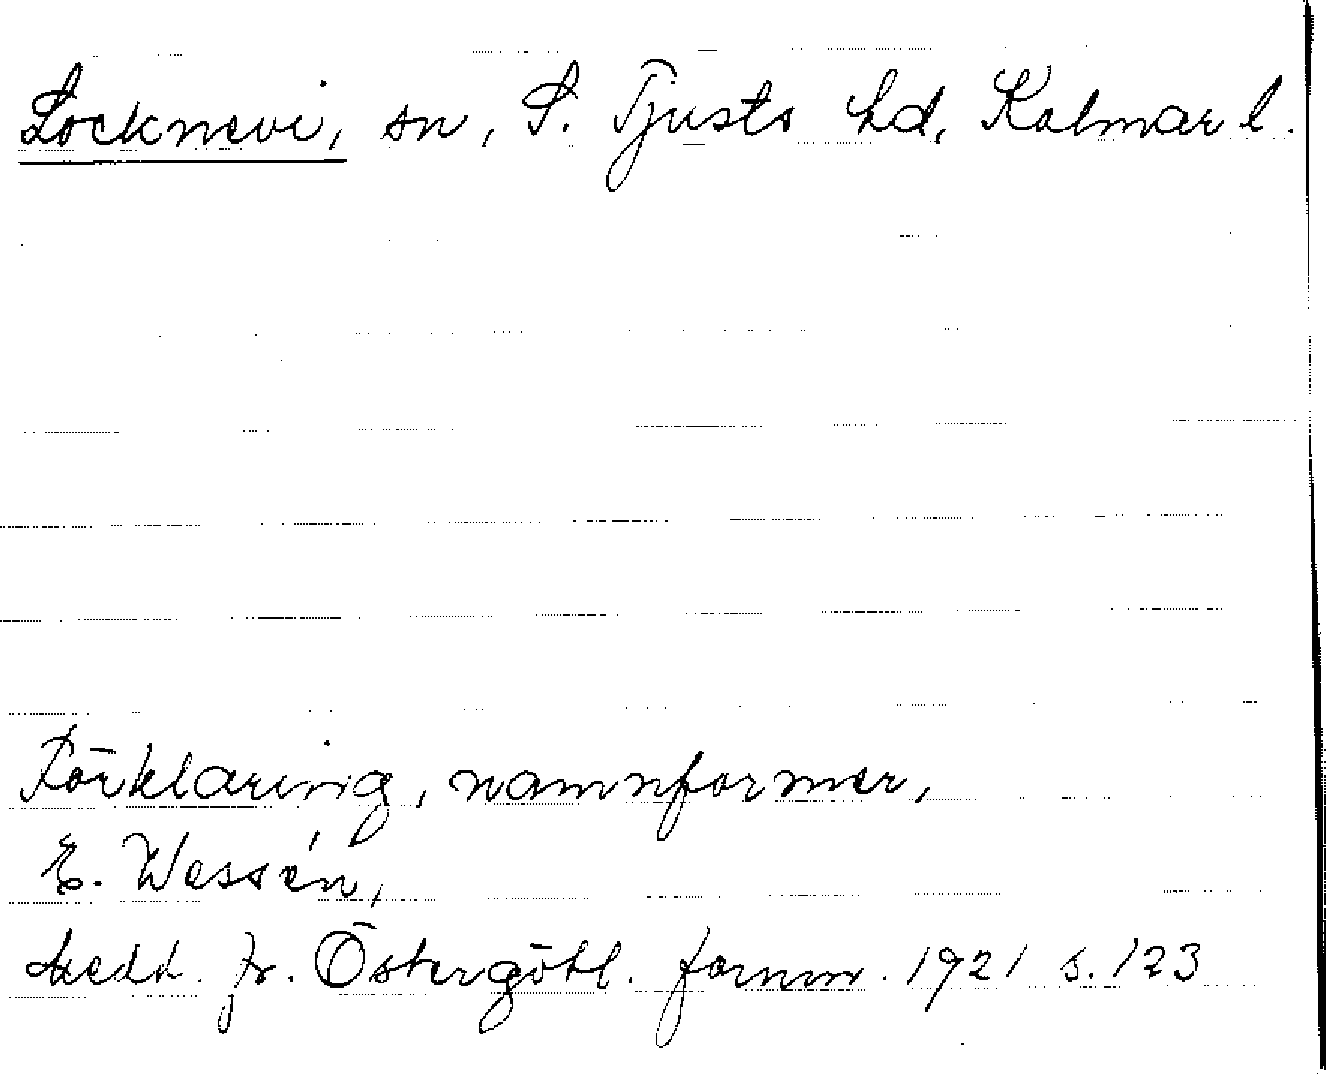 Locknevi, sn, S. Tjusts hd, Kalmar l.
Förklaring, namnformer,
E. Wessén,
Medd. fr. Östergötl. fornm. 1921 s. 123